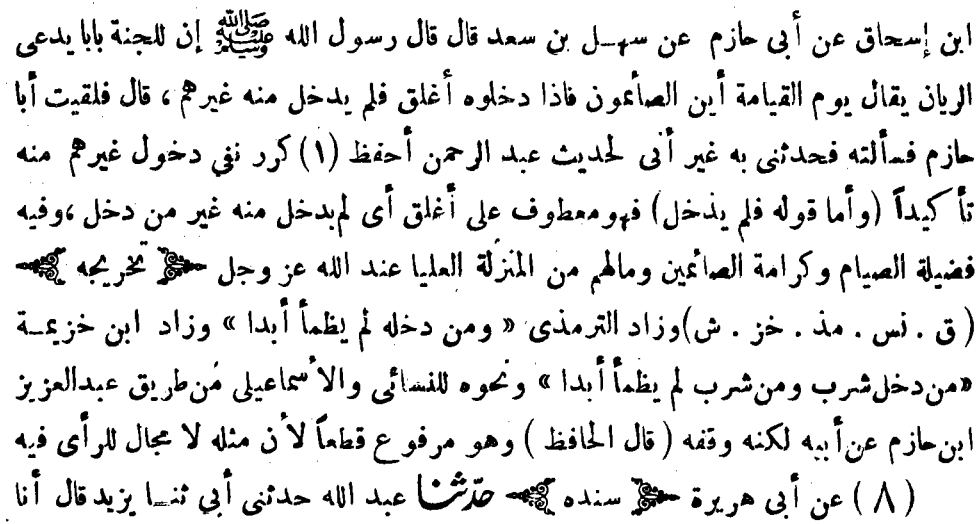 ابن إسحاق عن أبى حازم عن سهل بن سعد قال قال رسول الله ﷺ إن للجنة بابا يدعى
الريان يقال يوم القيامة أين الصائمون فاذا دخلوه أغلق فلم يدخل منه غيرهم ، قال فلقيت أبا
حازم فسألته فحدثنى به غير أنى لحديث عبد الرحمن أحفظ (١) كرر نفى دخول غيرهم منه
تأكيداً (وأما قوله فلم يدخل) فهو معطوف على أغلق أى لم يدخل منه غير من دخل ،وفيه
فضيلة الصيام وكرامة الصائمين ومالهم من المنزلة العليا عند الله عز وجل تخريجه
( ق . نس . مذ . خز . ش)وزاد الترمذى « ومن دخله لم يظمأ أبدا » وزاد ابن خزيمة
«من دخل شرب ومن شرب لم يظمأ أبدا » ونحوه للنسائى والأسماعيلى من طريق عبدالعزيز
ابن حازم عن أبيه لكنه وقفه ( قال الحافظ ) وهو مرفوع قطعاً لأن مثله لا مجال للرأى فيه
( ٨ ) عن أبى هريرة سنده حدّثنا عبد الله حدثنى أبي ثنا يزيد قال أنا